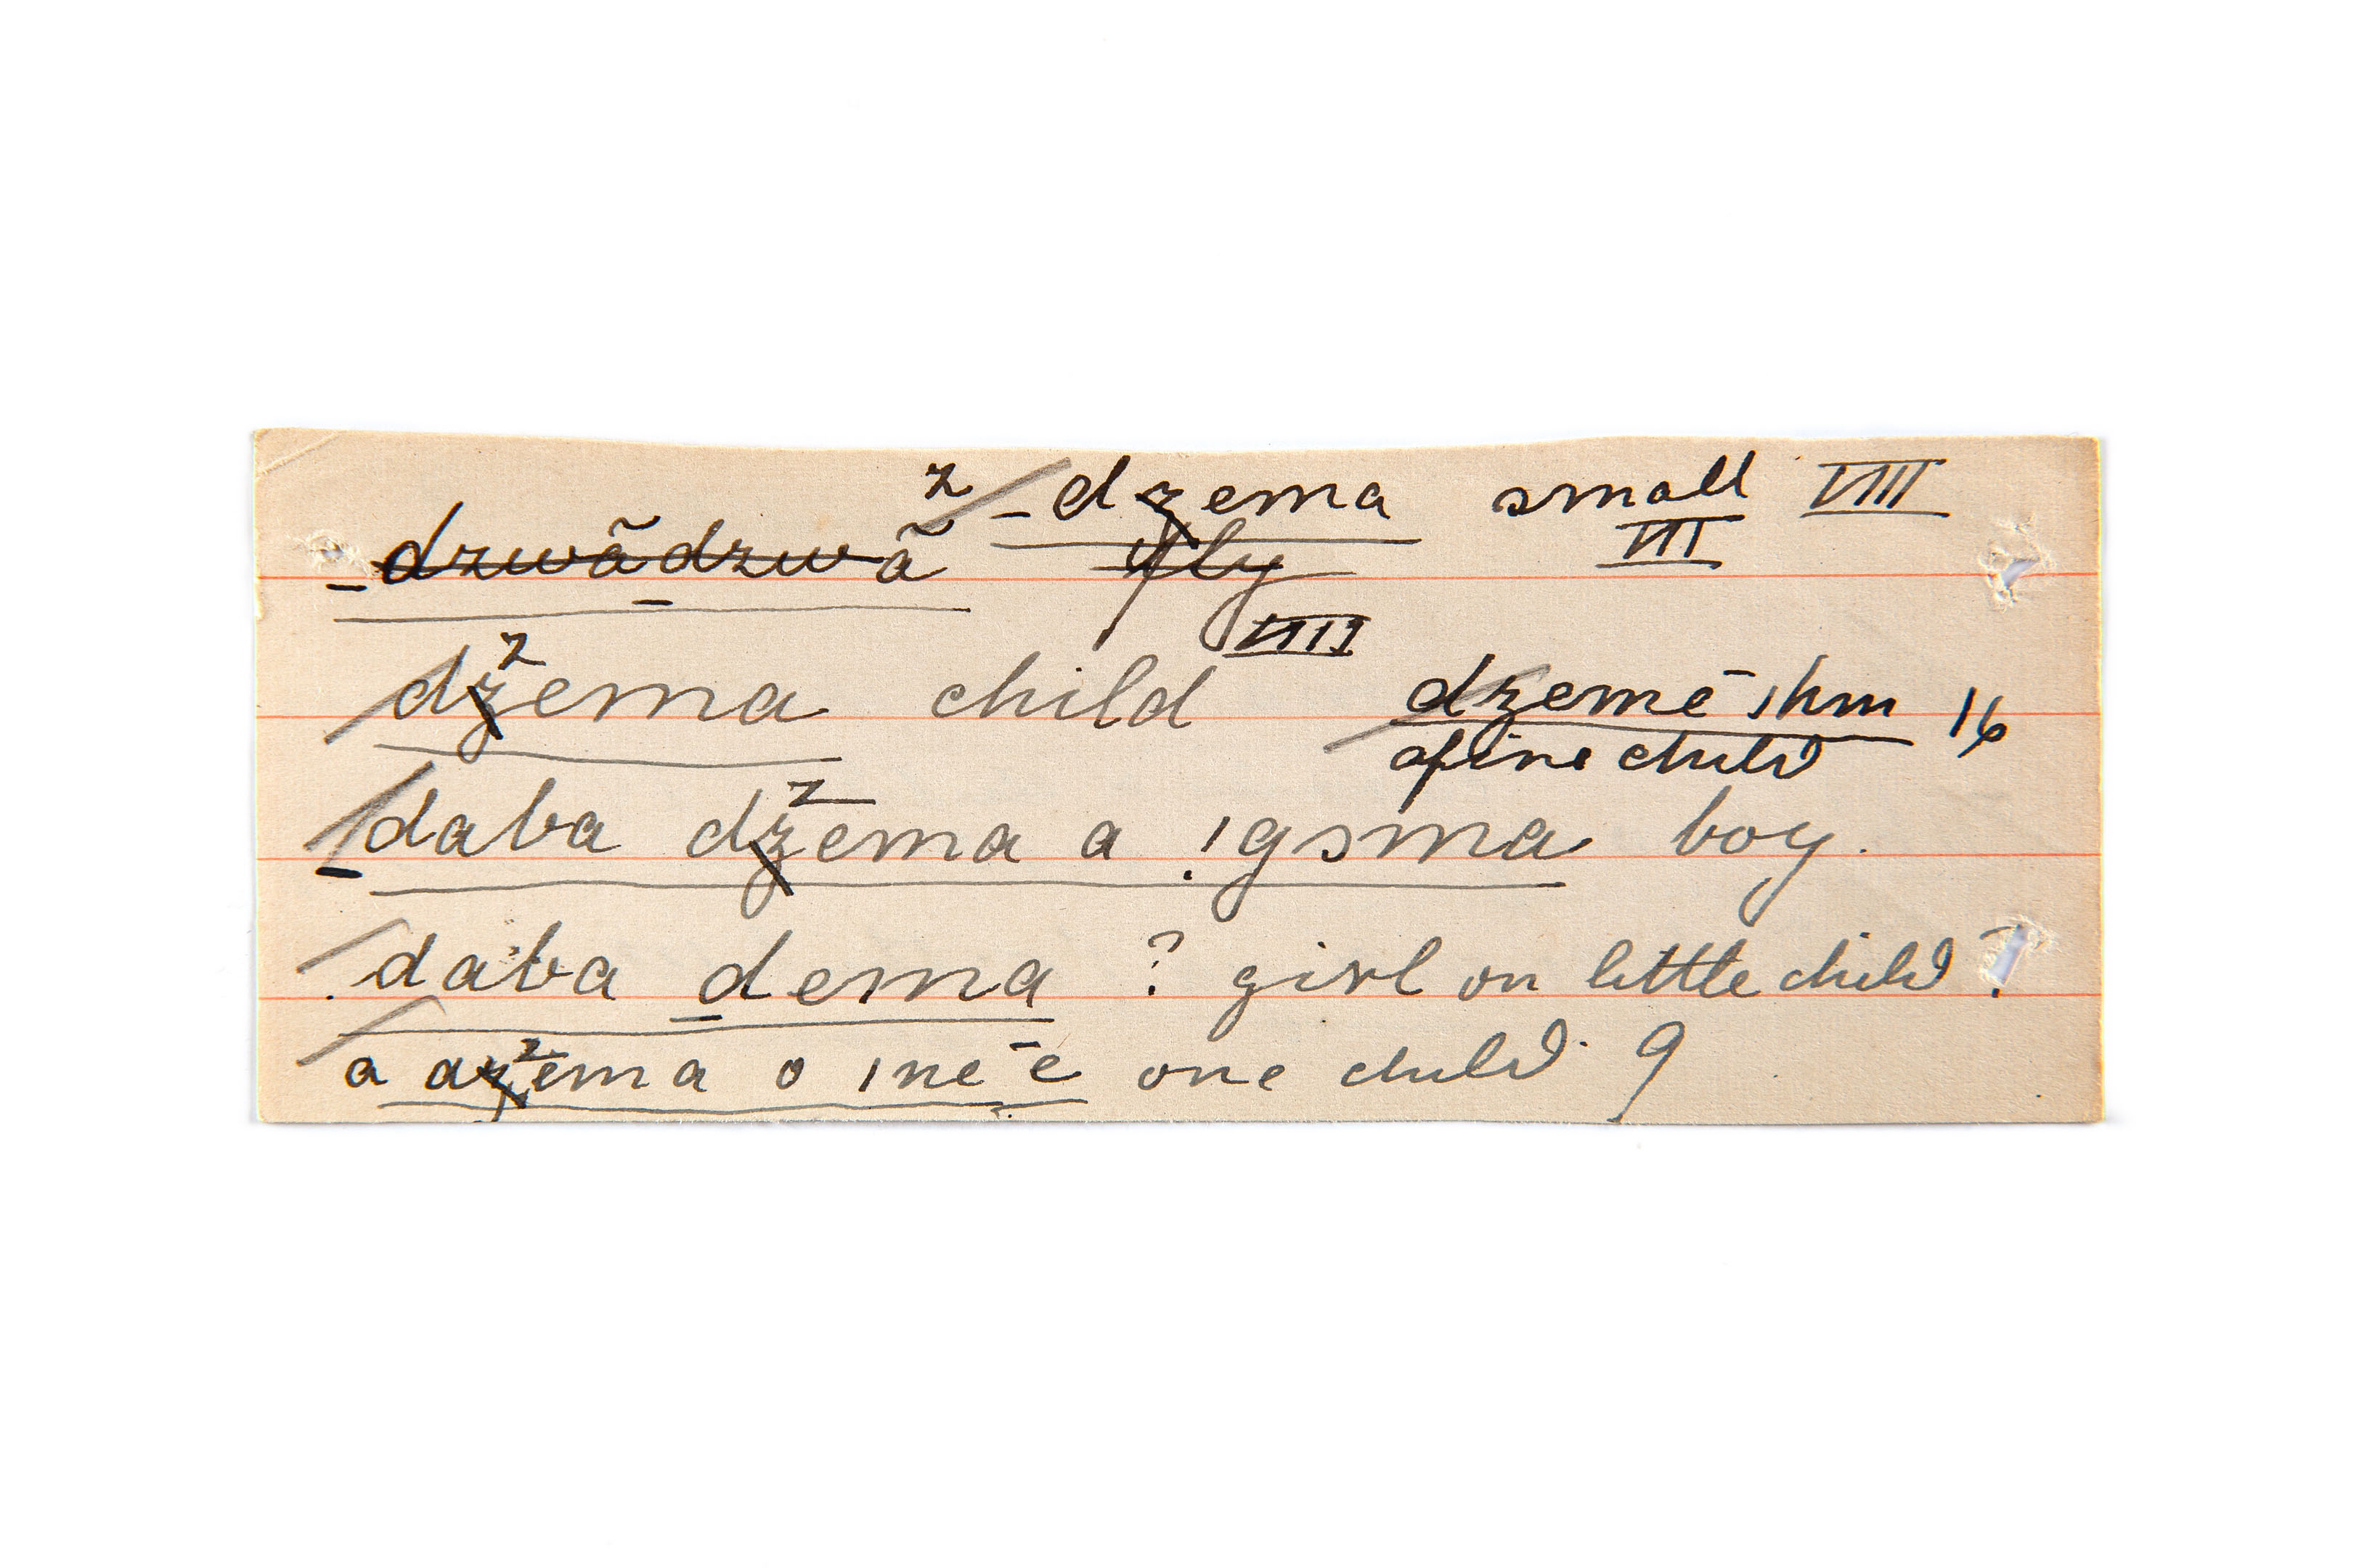 z _dzema small VIII
_dzwãdzwã fly VII
VIII
dzema child dzemē ıkm 16
z
a fine child
_daba dzema a !gsma boy.
z
daba _dema ? girl or little child?
a dzema o ıneē one child 9
z